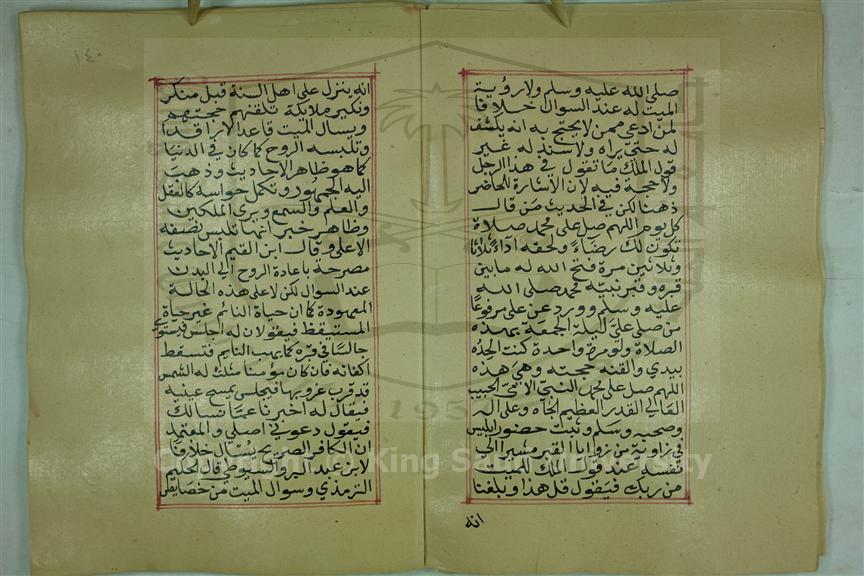 صلى الله عليه وسلم ولا رؤية
الميت له عند السوال خلافا
لمن ادعى ممن لا يحتج به انه يكشف
له حتى يراه ولا سند له غير
قول الملك ما تقول في هذا الرجل
ولا حجة فيه لان الاشارة للحاضر
ذهنا لكن في الحديث من قال
كل يوم اللهم صل على محمد صلاة
تكون لك رضاء ولحقه اداء ثلاثا
وثلاثين مرة فتح الله له ما بين
قبره وقبر نبيه محمد صلى الله
عليه وسلم وورد عن علي مرفوعا
من صلى علي ليلة الجمعة بهذه
الصلاة ولو مرة واحدة كنت الحده
بيدي والقنه حجته وهي هذه
اللهم صل على محمد النبي الامي الحبيب
العالي القدر العظيم الجاه وعلى اله
وصحبه وسلم وثبت حضور ابليس
في زاوية من زوايا القبر مشيرا الى
نفسه عند قول الملك للميت
من ربك فيقول قل هذا وبلغنا
انه
١٤٠
انه ينزل على اهل السنة قبل منكر
ونكير ملايكة تلقنهم حجتهم
ويسال الميت قاعدا لا راقدا
وتلبسه الروح كما كان في الدنيا
كما هو ظاهر الاحاديث وذهب
اليه الجمهور وتكمل حواسه كالعقل
والعلم والسمع ويرى الملكين
وظاهر خبر انها تلبس نصفه
الاعلى وقال ابن القيم الاحاديث
مصرحة باعادة الروح الى البدن
عند السوال لكن لا على هذه الحالة
المعهودة كما ان حياة النائم غير حياة
المستيقظ فيقولان له اجلس فيستوي
جالسا في قبره كما يهب النايم فتسقط
اكفانه فان كان مؤمنا مثلت له الشمس
قد قرب غروبها فيجلس يمسح عينيه
فيقال له اخبرنا عما نسالك
فيقول دعوني اصلي والمعتمد
ان الكافر الصريح يسئل خلافا
لابن عبد البر والسيوطي قال الحكيم
الترمذي وسوال الميت من خصايص
Copyright © King Saud University
195